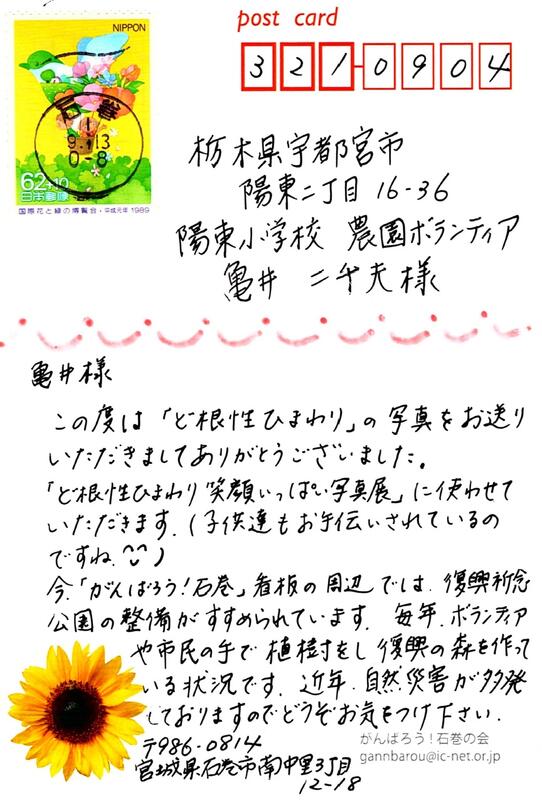 post card
NIPPON
石巻
9.13
0-8
62+10
日本郵便
国際花と緑の博覧会・平成元年 1989
321-0904
栃木県宇都宮市
陽東二丁目 16-36
陽東小学校 農園ボランティア
亀井 二千夫様
亀井様
この度は「ど根性ひまわり」の写真をお送り
いただきましてありがとうございました。
「ど根性ひまわり笑顔いっぱい写真展」に使わせて
いただきます.(子供達もお手伝いされているの
ですね.)
今、「がんばろう!石巻」看板の周辺では、復興祈念
公園の整備がすすめられています. 毎年、ボランティア
や市民の手で植樹をし復興の森を作って
いる状況です. 近年、自然災害が多発
しておりますのでどうぞお気をつけ下さい.
〒986-0814
宮城県石巻市南中里3丁目
12-18
がんばろう!石巻の会
gannbarou@ic-net.or.jp